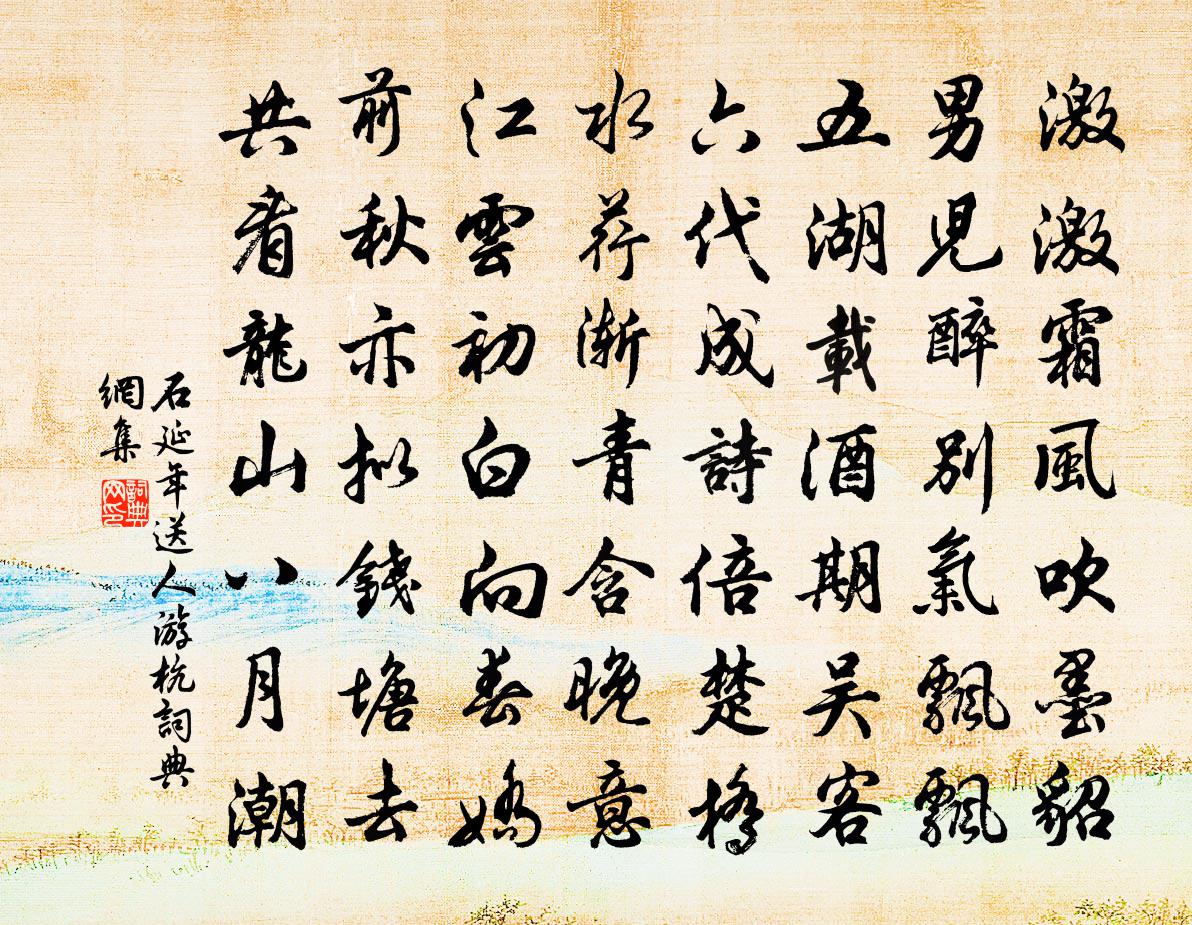 激激霜風吹墨貂
男兒醉別氣飄飄
五湖載酒期吴客
六代成詩倍楚橋
水荇漸青含晚意
江雲初白向春嬌
前秋亦拟錢塘去
共看龍山八月潮
石延年送人游杭詞典
網集
詞典網印